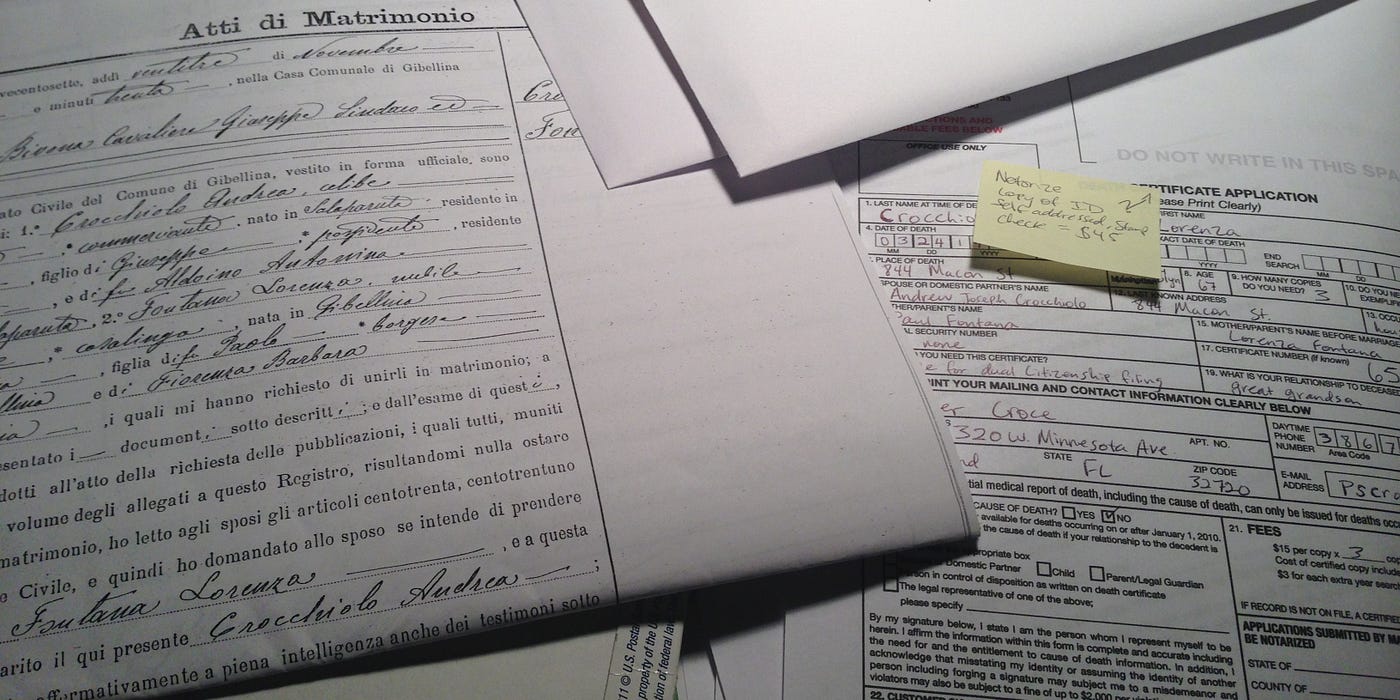 Atti di Matrimonio
vecentosette, addì ventitre di Novembre
e minuti trenta, nella Casa Comunale di Gibellina
Bivona Cavaliere Giuseppe Sindaco ed
ato Civile del Comune di Gibellina, vestito in forma ufficiale, sono
i: 1.° Crocchiolo Andrea, celibe
commerciante, nato in Salaparuta, residente in
, figlio di Giuseppe, possidente, residente
, e di fu Aldoino Antonina
laparuta, 2.° Fontana Lorenza, nubile
, casalinga, nata in Gibellina
, figlia di fu Paolo, borgese
e di Fiorenza Barbara
, i quali mi hanno richiesto di unirli in matrimonio; a
sentato i document, sotto descritt; e dall'esame di quest,
dotti all'atto della richiesta delle pubblicazioni, i quali tutti, muniti
volume degli allegati a questo Registro, risultandomi nulla ostare
matrimonio, ho letto agli sposi gli articoli centotrenta, centotrentuno
e Civile, e quindi ho domandato allo sposo se intende di prendere
Fontana Lorenza, e a questa
arito il qui presente Crocchiolo Andrea;
ffermativamente a piena intelligenza anche dei testimoni sotto
Cro
Fon
11 © U.S. Posta
property of the U
tion of federal law
TIONS AND
ABLE FEES BELOW
OFFICE USE ONLY
DO NOT WRITE IN THIS SPA
Notorize
copy of ID
self addressed, stamp
check = $45
RTIFICATE APPLICATION
ease Print Clearly)
1. LAST NAME AT TIME OF DE
Crocchio
RST NAME
orenza
4. DATE OF DEATH
0 3 2 4 1
MM DD YYYY
XACT DATE OF DEATH
YYYY
END
SEARCH
MM DD
PLACE OF DEATH
844 Macon St
lyn
8. AGE
67
9. HOW MANY COPIES
DO YOU NEED? 3
10. DO YOU NE
EXEMPLI
SPOUSE OR DOMESTIC PARTNER'S NAME
Andrew Joseph Crocchiolo
12. LAST KNOWN ADDRESS
844 Macon St.
13. OCCU
HER/PARENT'S NAME
Paul Fontana
15. MOTHER/PARENT'S NAME BEFORE MARRIAGE
Lorenza Fontana
SECURITY NUMBER
none
17. CERTIFICATE NUMBER (if known)
65
YOU NEED THIS CERTIFICATE?
e for dual Citizenship filing
19. WHAT IS YOUR RELATIONSHIP TO DECEASED
great grandson
INT YOUR MAILING AND CONTACT INFORMATION CLEARLY BELOW
er Croce
320 W. Minnesota Ave.
APT. NO.
DAYTIME
PHONE
NUMBER
3 8 6 7
Area Code
nd
STATE
FL
ZIP CODE
32720
E-MAIL
ADDRESS
Pscro
tial medical report of death, including the cause of death, can only be issued for deaths occu
CAUSE OF DEATH? YES NO
available for deaths occurring on or after January 1, 2010.
the cause of death if your relationship to the decedent is
propriate box
Domestic Partner Child Parent/Legal Guardian
Person in control of disposition as written on death certificate
The legal representative of one of the above;
please specify
By my signature below, I state I am the person whom I represent myself to be
herein. I affirm the information within this form is complete and accurate including
the need for and the entitlement to cause of death information. In addition, I
acknowledge that misstating my identity or assuming the identity of another
person including forging a signature may subject me to a misdemeanor and
violators may also be subject to a fine of up to $2,000 per
22. CUSTOMER
21. FEES
$15 per copy x 3 cop
Cost of certified copy include
$3 for each extra year sear
IF RECORD IS NOT ON FILE, A CERTIFIE
APPLICATIONS SUBMITTED BY M
BE NOTARIZED
STATE OF
COUNTY OF